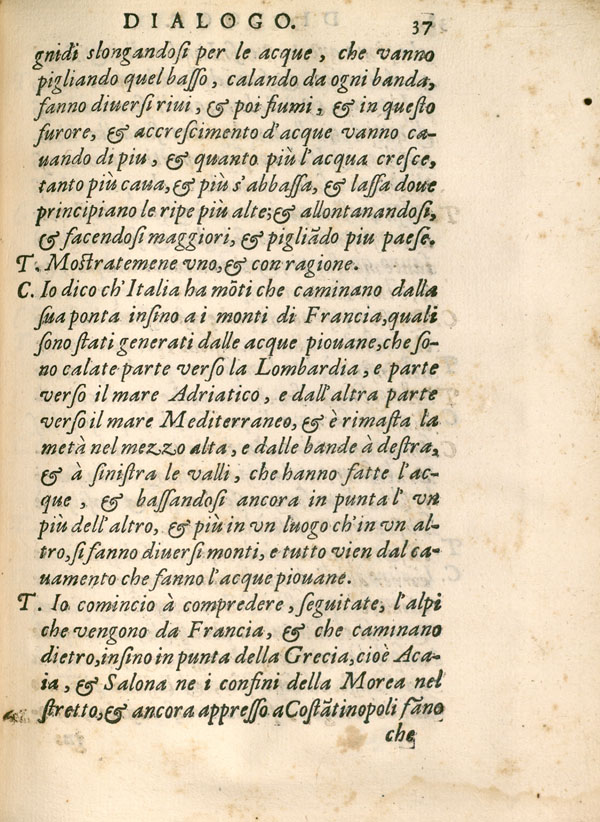 DIALOGO. 37
gnidi slongandosi per le acque, che vanno
pigliando quel basso, calando da ogni banda,
fanno diuersi riui, & poi fiumi, & in questo
furore, & accrescimento d'acque vanno ca-
uando di piu, & quanto più l'acqua cresce,
tanto più caua, & più s'abbassa, & lassa doue
principiano le ripe più alte; & allontanandosi,
& facendosi maggiori, & pigliãdo piu paese.
T. Mostratemene vno, & con ragione.
C. Io dico ch'Italia ha mõti che caminano dalla
sua ponta insino a i monti di Francia, quali
sono stati generati dalle acque piouane, che so-
no calate parte verso la Lombardia, e parte
verso il mare Adriatico, e dall'altra parte
verso il mare Mediterraneo, & è rimasta la
metà nel mezzo alta, e dalle bande à destra,
& à sinistra le valli, che hanno fatte l'ac-
que, & bassandosi ancora in punta l' vn
più dell'altro, & più in vn luogo ch'in vn al-
tro, si fanno diuersi monti, e tutto vien dal ca-
uamento che fanno l'acque piouane.
T. Io comincio à compredere, seguitate, l'alpi
che vengono da Francia, & che caminano
dietro, insino in punta della Grecia, cioè Aca-
ia, & Salona ne i confini della Morea nel
stretto, & ancora appresso a Costãtinopoli fãno
che